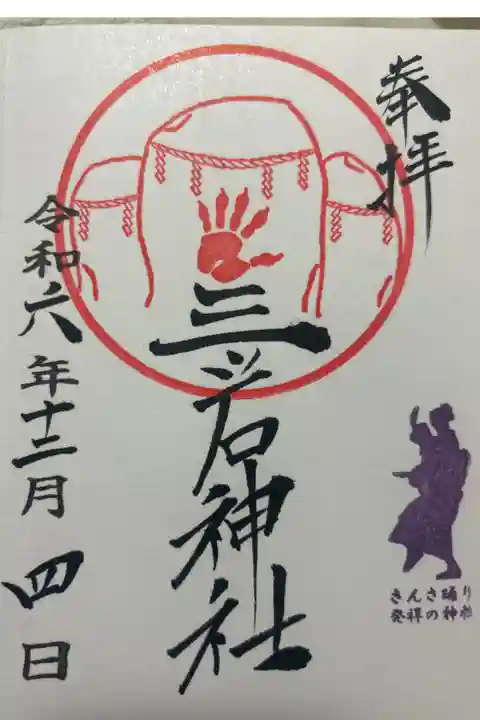 奉拝
三ツ石神社
令和六年十二月四日
さんさ踊り
発祥の神社